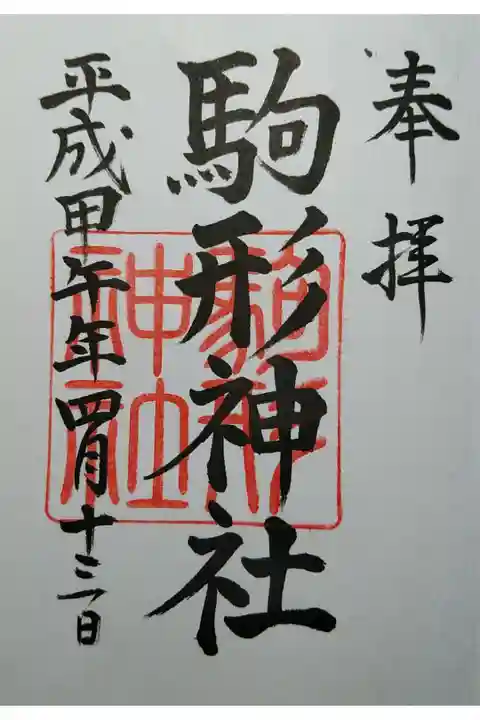 奉拝
駒形神社
平成甲午年四月十三日
駒形神社